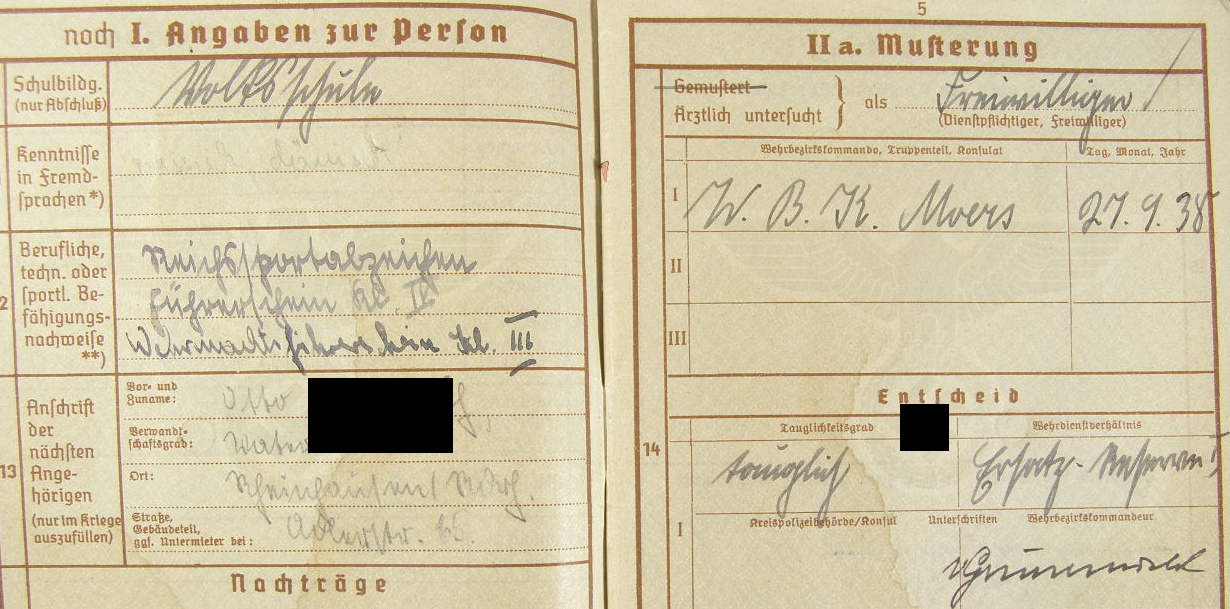 noch I. Angaben zur Person
Schulbildg.
(nur Abschluß)
Volksschule
Kenntnisse
in Fremd-
sprachen *)
Berufliche,
techn. oder
sportl. Be-
fähigungs-
nachweise
**)
Reichssportabzeichen
Führerschein Kl. IV
Wehrmachtsführerschein Kl. III
12
13
Anschrift
der
nächsten
Ange-
hörigen
(nur im Kriege
auszufüllen)
Vor- und
Zuname:
Otto
Verwandt-
schaftsgrad:
Vater
Ort:
Rheinhausen
Straße,
Gebäudeteil,
ggf. Untermieter bei:
Adlerstr.
Nachträge
5
IIa. Musterung
Gemustert
Ärztlich untersucht } als Freiwilliger
(Dienstpflichtiger, Freiwilliger)
Wehrbezirkskommando, Truppenteil, Konsulat
Tag, Monat, Jahr
I W. B. K. Moers 27. 9. 38
II
III
Entscheid
14
Tauglichkeitsgrad
Wehrdienstverhältnis
tauglich
Ersatz-Reserve I
I
Kreispolizeibehörde/Konsul
Unterschriften
Wehrbezirkskommandeur